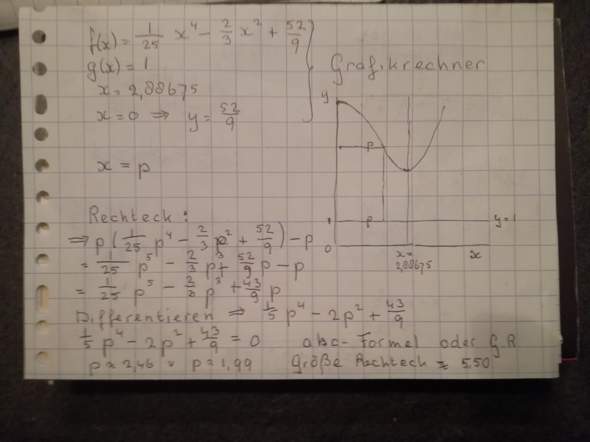 f(x) = 1/25 x⁴ - 2/3 x² + 52/9
g(x) = 1
x = 2,88675
x = 0 ⇒ y = 52/9
Grafikrechner
y
p
1
p
y = 1
0
x =
2,88675
x
x = p
Rechteck:
⇒ p(1/25 p⁴ - 2/3 p² + 52/9) - p
= 1/25 p⁵ - 2/3 p³ + 52/9 p - p
= 1/25 p⁵ - 2/3 p³ + 43/9 p
Differentieren ⇒ 1/5 p⁴ - 2p² + 43/9
1/5 p⁴ - 2p² + 43/9 = 0 abc-Formel oder G.R
p ≈ 2,46 v p ≈ 1,99 Größe Rechteck ≈ 5.50